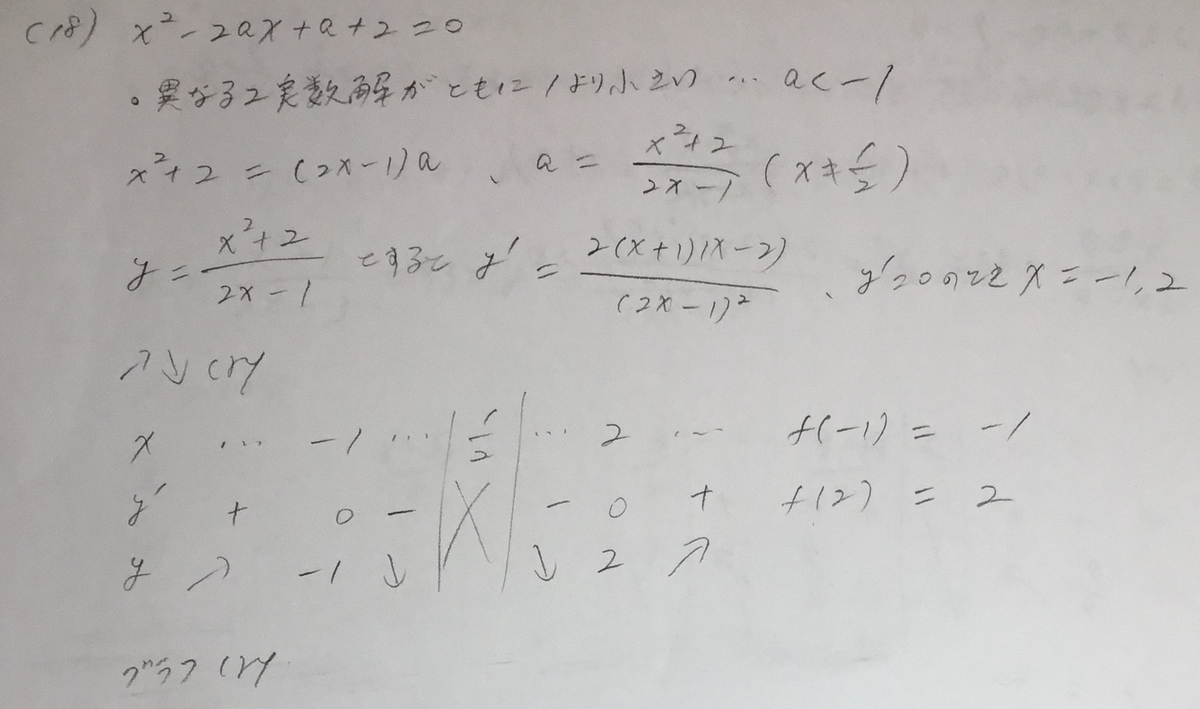 (18) x²-2ax+a+2=0
。異なる2実数解がともに1より小さい … a<-1
x²+2=(2x-1)a 、 a = (x²+2)/(2x-1) (x≠1/2)
y = (x²+2)/(2x-1) とすると y' = 2(x+1)(x-2)/(2x-1)² 、y'=0のとき x=-1,2
↗↘より
x … -1 … 1/2 … 2 … f(-1) = -1
y' + 0 - ╳ - 0 + f(2) = 2
y ↗ -1 ↘ ↘ 2 ↗
グラフより